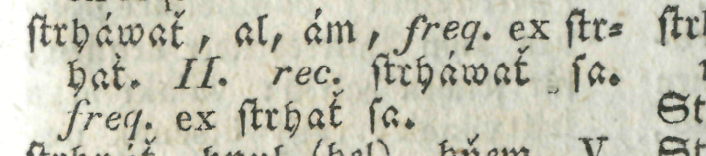 ſtrháwať, al, ám, freq. ex ſtr= ſtrh
hať. II. rec. ſtrháwať ſa.
freq. ex ſtrhať ſa. St